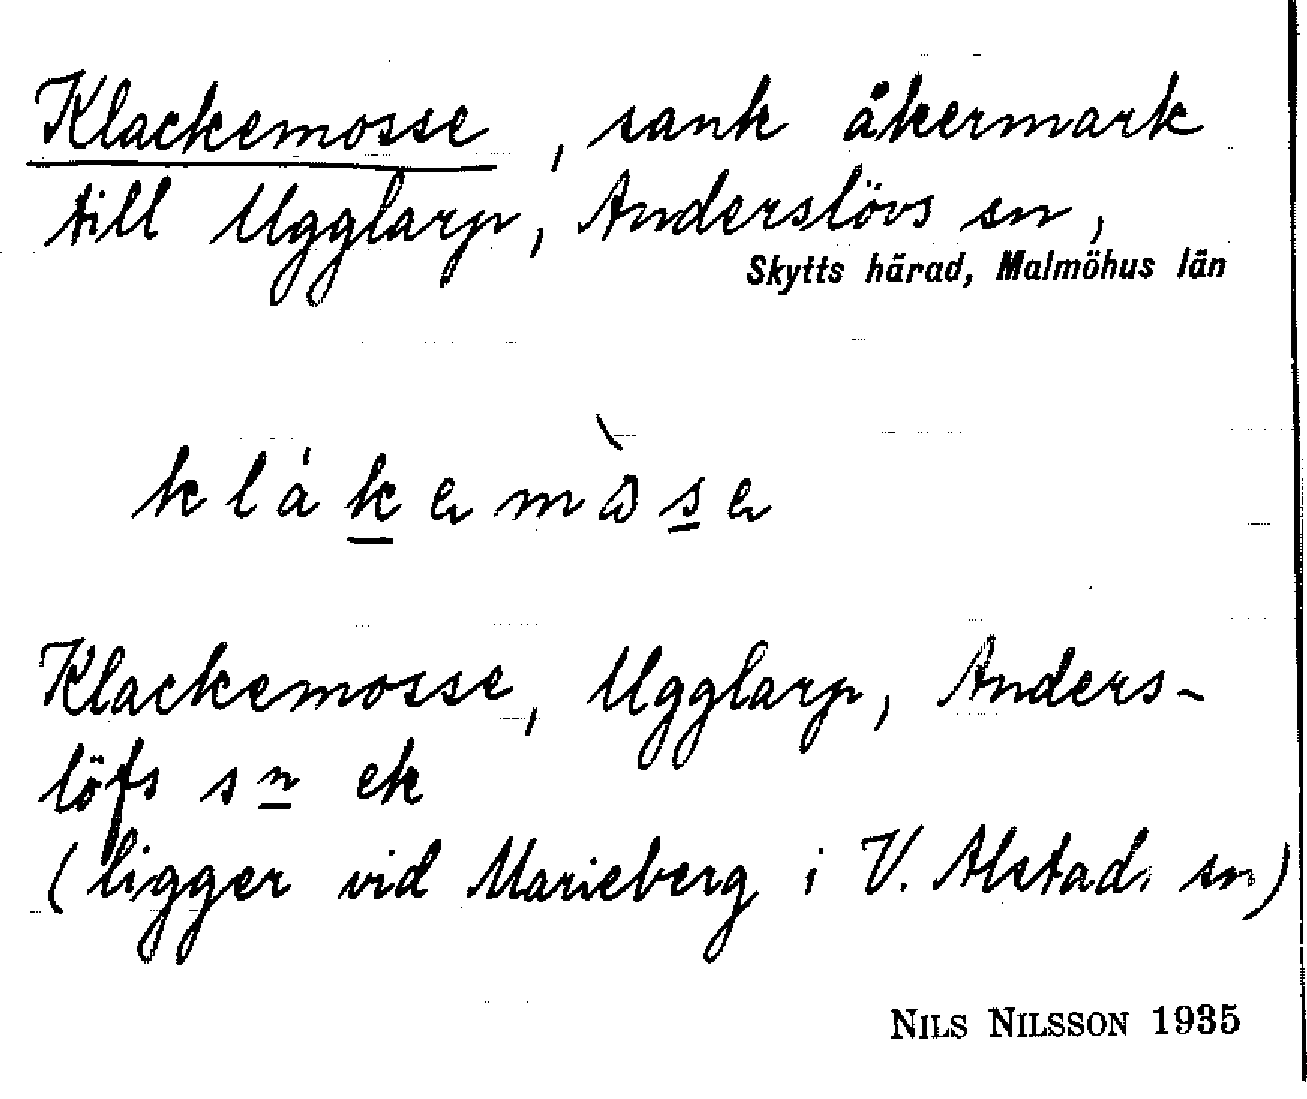 Klackemosse, sank åkermark
till Ugglarp, Anderslövs sn,
Skytts härad, Malmöhus län
klákemòse
Klackemosse, Ugglarp, Anders-
löfs sn ek
(ligger vid Marieberg i V. Alstad. sn)
NILS NILSSON 1935